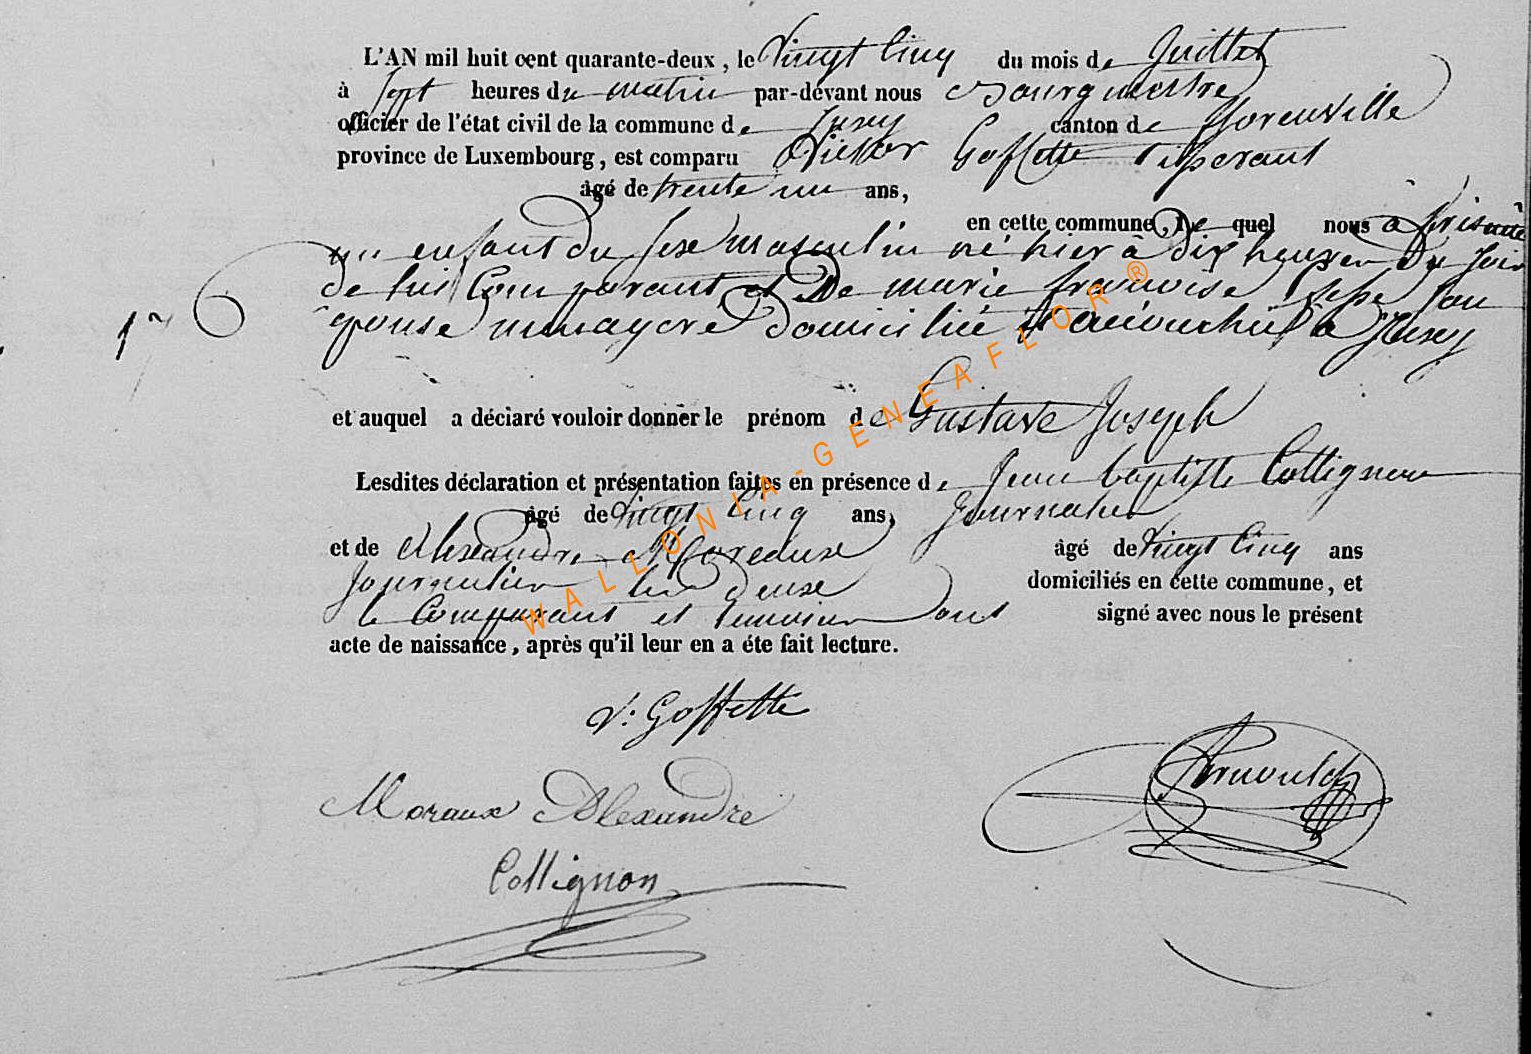 L'AN mil huit cent quarante-deux, le vingt Cinq du mois de Juillet
à Sept heures du matin par-devant nous Bourgmestre
officier de l'état civil de la commune de Jusey canton de Morenville
province de Luxembourg, est comparu Victor Goffette
âgé de trente un ans,
en cette commune, le quel nous à présenté
un enfant du Sexe masculin né hier à dix heures du Soir
de lui Comparant et De marie françoise Son
epouse menagere Domiciliée et accouchée a Jusey
17
et auquel a déclaré vouloir donner le prénom de Gustave Joseph
Lesdites déclaration et présentation faites en présence de Jean baptiste Collignon
âgé de vingt Cinq ans, Journalier
et de Alexandre âgé de vingt Cinq ans
Journalier domiciliés en cette commune, et
le Comparant et temoins ont signé avec nous le présent
acte de naissance, après qu'il leur en a éte fait lecture.
V: Goffette
Arnould
Moraux Alexandre
Collignon
WALLONIA-GENEAFLOR®